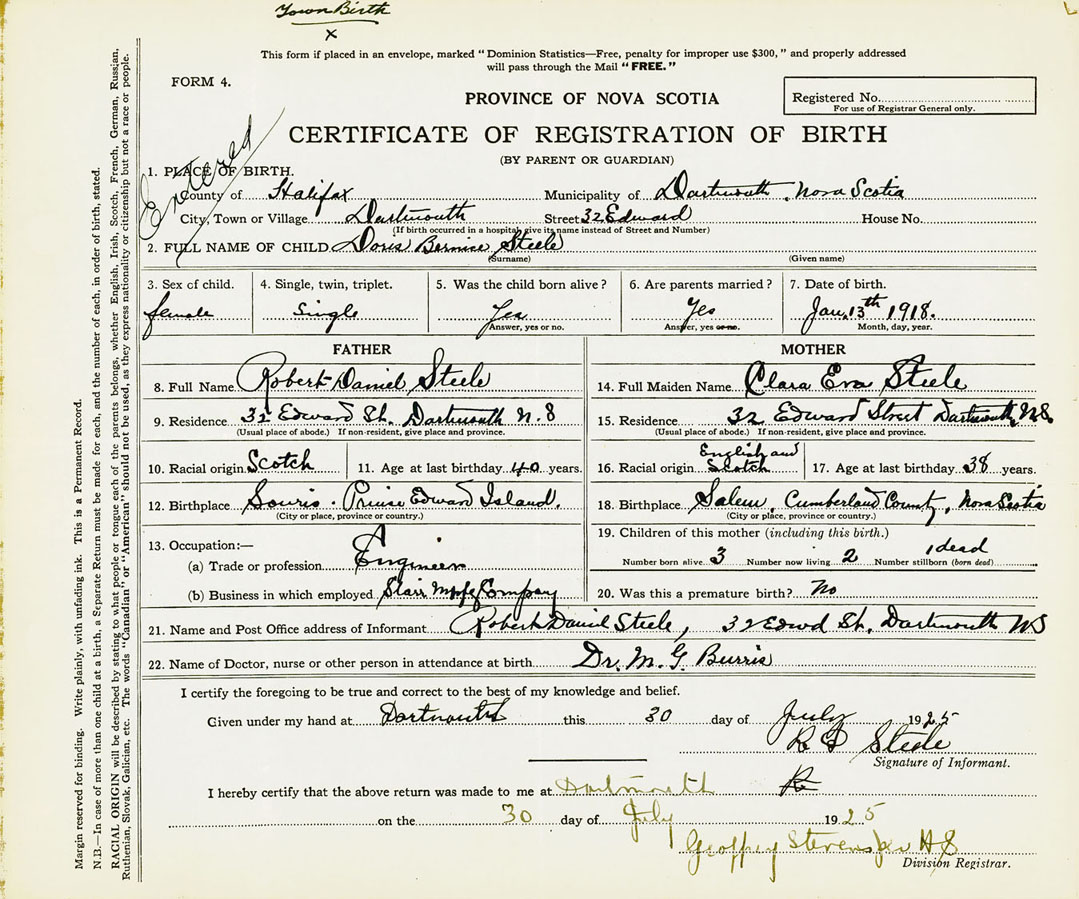 Town Birth
x
This form if placed in an envelope, marked "Dominion Statistics—Free, penalty for improper use $300," and properly addressed
will pass through the Mail "FREE."
FORM 4.
PROVINCE OF NOVA SCOTIA
Registered No.
For use of Registrar General only.
CERTIFICATE OF REGISTRATION OF BIRTH
(BY PARENT OR GUARDIAN)
Entered
1. PLACE OF BIRTH.
County of Halifax Municipality of Dartmouth, Nova Scotia
City, Town or Village Dartmouth Street 32 Edward House No.
(If birth occurred in a hospital, give its name instead of Street and Number)
2. FULL NAME OF CHILD Doris Bernice Steele
(Surname) (Given name)
3. Sex of child. 4. Single, twin, triplet. 5. Was the child born alive? 6. Are parents married? 7. Date of birth.
female Single Yes Yes Jan. 13th 1918.
Answer, yes or no. Answer, yes or no. Month, day, year.
FATHER MOTHER
8. Full Name Robert Daniel Steele 14. Full Maiden Name Clara Eva Steele
9. Residence 32 Edward St. Dartmouth N.S 15. Residence 32 Edward Street Dartmouth, N.S.
(Usual place of abode.) If non-resident, give place and province. (Usual place of abode.) If non-resident, give place and province.
10. Racial origin Scotch 11. Age at last birthday 40 years. 16. Racial origin English and Scotch 17. Age at last birthday 38 years.
12. Birthplace Souris. Prince Edward Island. 18. Birthplace Salem, Cumberland County, Nova Scotia
(City or place, province or country.) (City or place, province or country.)
13. Occupation:— 19. Children of this mother (including this birth.)
(a) Trade or profession Engineer Number born alive 3 Number now living 2 Number stillborn (born dead) 1 dead
(b) Business in which employed Starr Mnfg Company 20. Was this a premature birth? No
21. Name and Post Office address of Informant Robert Daniel Steele, 32 Edwd St. Dartmouth NS
22. Name of Doctor, nurse or other person in attendance at birth Dr. M. G. Burris
I certify the foregoing to be true and correct to the best of my knowledge and belief.
Given under my hand at Dartmouth this 30 day of July 1925
R D Steele
Signature of Informant.
I hereby certify that the above return was made to me at Dartmouth
on the 30 day of July 1925
Geoffrey Stevens
Division Registrar.
Margin reserved for binding. Write plainly, with unfading ink. This is a Permanent Record.
N.B.—In case of more than one child at a birth, a Separate Return must be made for each, and the number of each, in order of birth, stated.
RACIAL ORIGIN will be described by stating to what people or tongue each of the parents belongs, whether English, Irish, Scotch, French, German, Russian,
Ruthenian, Slovak, Galician, etc. The words "Canadian" or "American" should not be used, as they express nationality or citizenship but not a race or people.